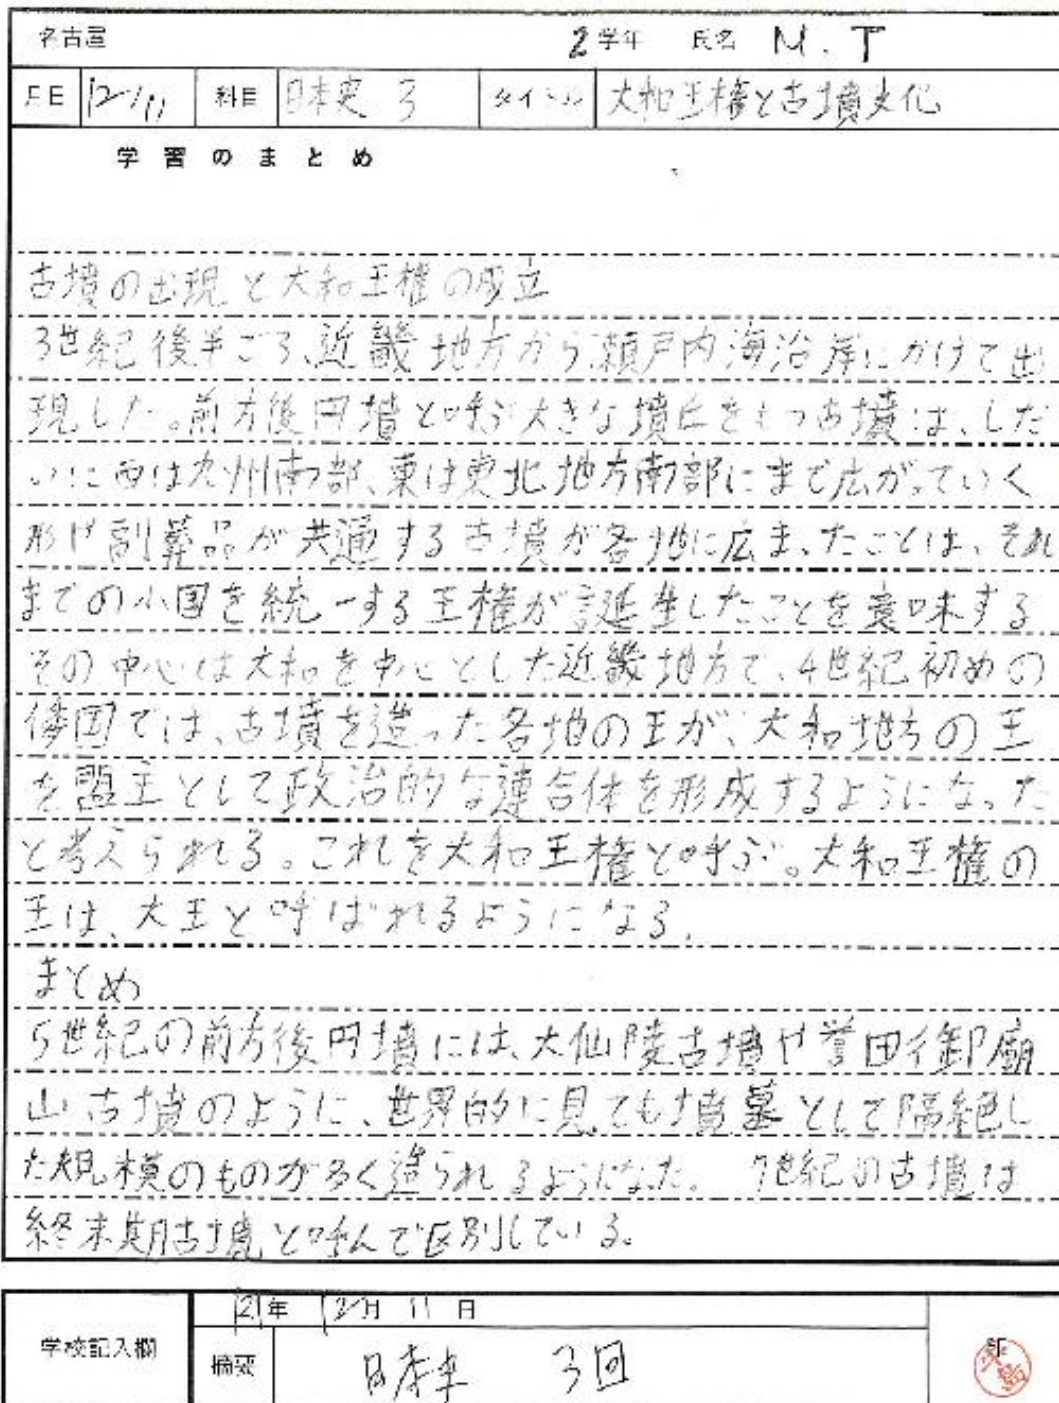 名古屋 2学年 氏名 M.T
月日 12/11 科目 日本史 3 タイトル 大和王権と古墳文化
学習のまとめ
古墳の出現と大和王権の成立
3世紀後半ごろ、近畿地方から瀬戸内海沿岸にかけて出
現した。前方後円墳と呼ぶ大きな墳丘をもつ古墳は、しだ
いに西は九州南部、東は東北地方南部にまで広がっていく
形や副葬品が共通する古墳が各地に広まったことは、それ
までの小国を統一する王権が誕生したことを意味する
その中心は大和を中心とした近畿地方で、4世紀初めの
倭国では、古墳を造った各地の王が、大和地方の王
を盟主として政治的な連合体を形成するようになった
と考えられる。これを大和王権と呼ぶ。大和王権の
王は、大王と呼ばれるようになる。
まとめ
5世紀の前方後円墳には、大仙陵古墳や誉田御廟
山古墳のように、世界的に見ても墳墓として隔絶し
た規模のものが多く造られるようになった。 7世紀の古墳は
終末期古墳と呼んで区別している。
学校記入欄 年 12月 11日
摘要 日本史 3回